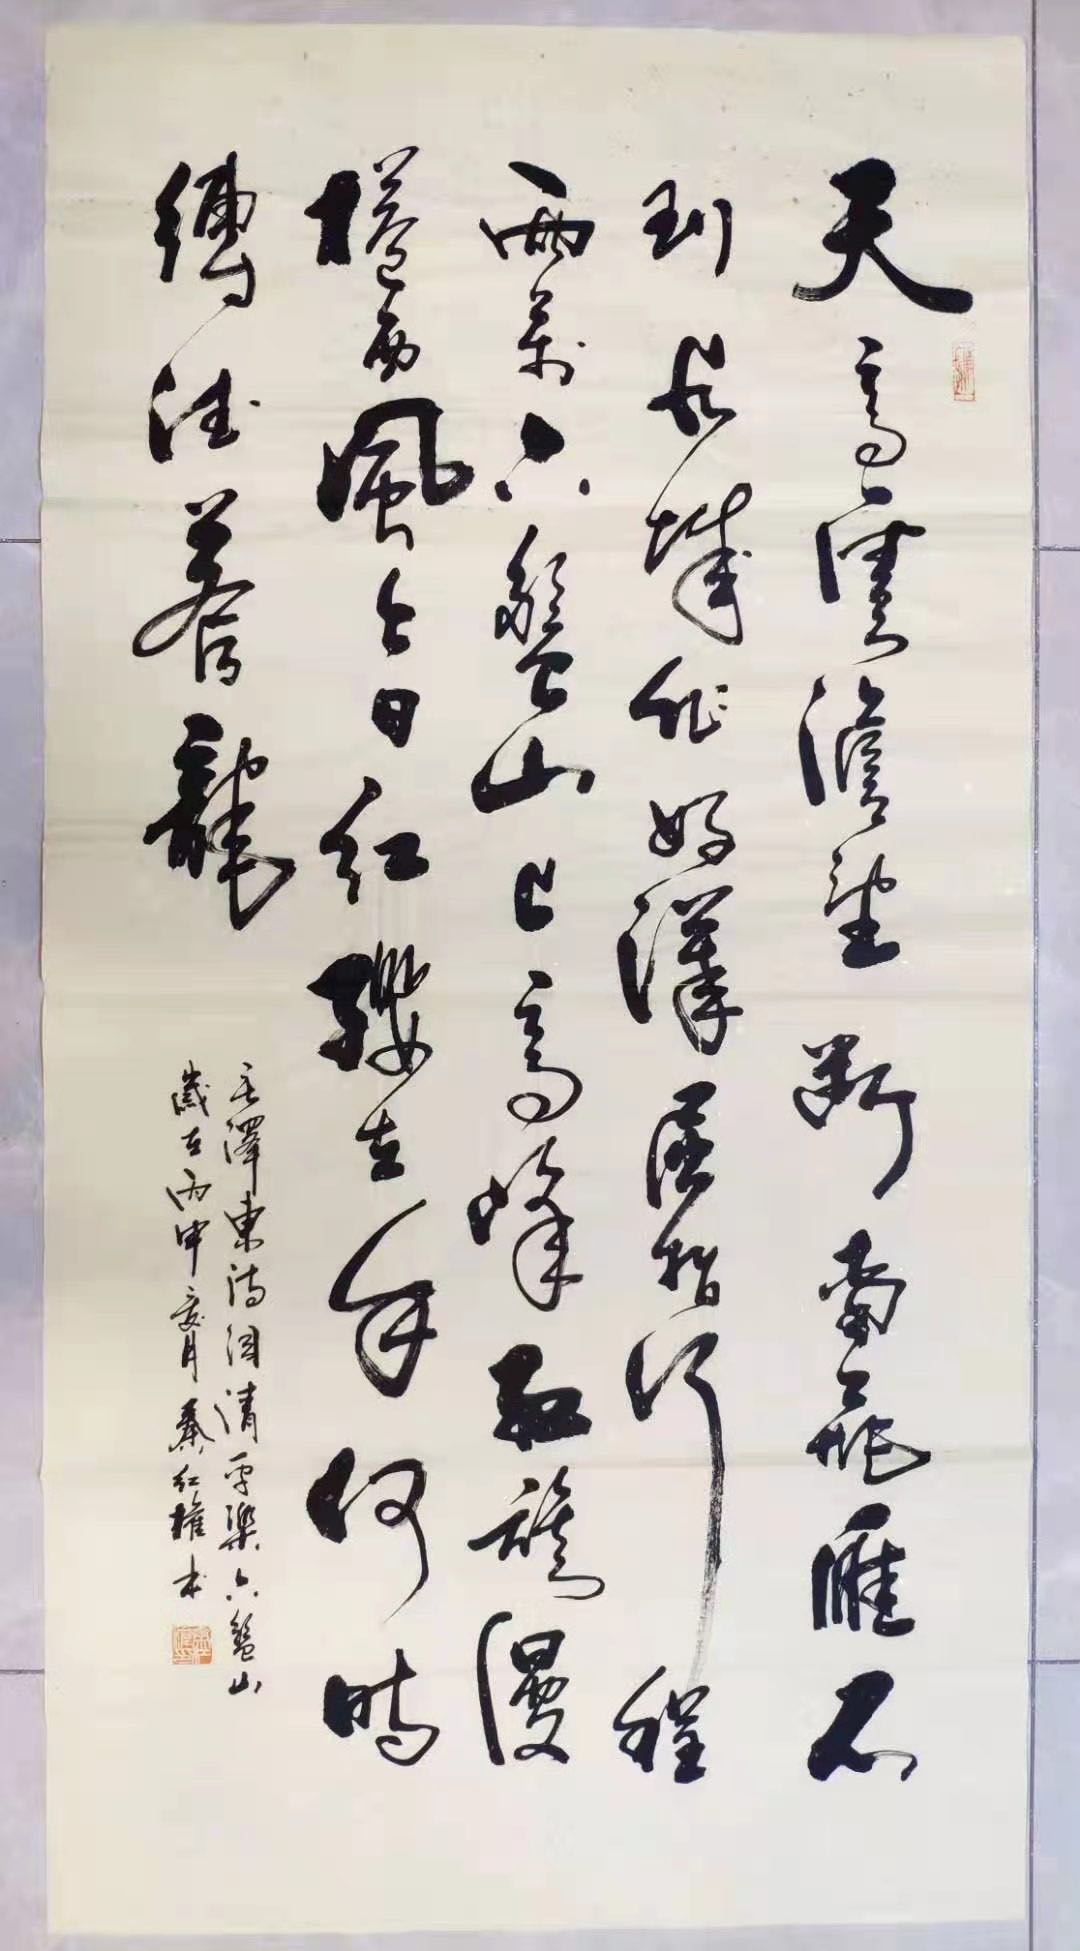 天高雲澹望斷南飛雁不
到長城非好漢屈指行程
兩萬六盤山上高峰紅旗漫
捲西風今日紅纓在手何時
縛住蒼龍
毛澤東詩詞清平樂六盤山
歲在丙申夏月秦红權书